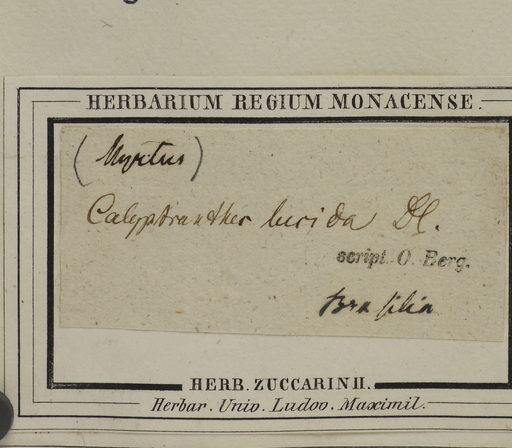 HERBARIUM REGIUM MONACENSE.
(Myrtus)
Calyptranthes lucida Dl.
script. O. Berg.
Brasilia
HERB. ZUCCARINII.
Herbar. Univ. Ludov. Maximil.